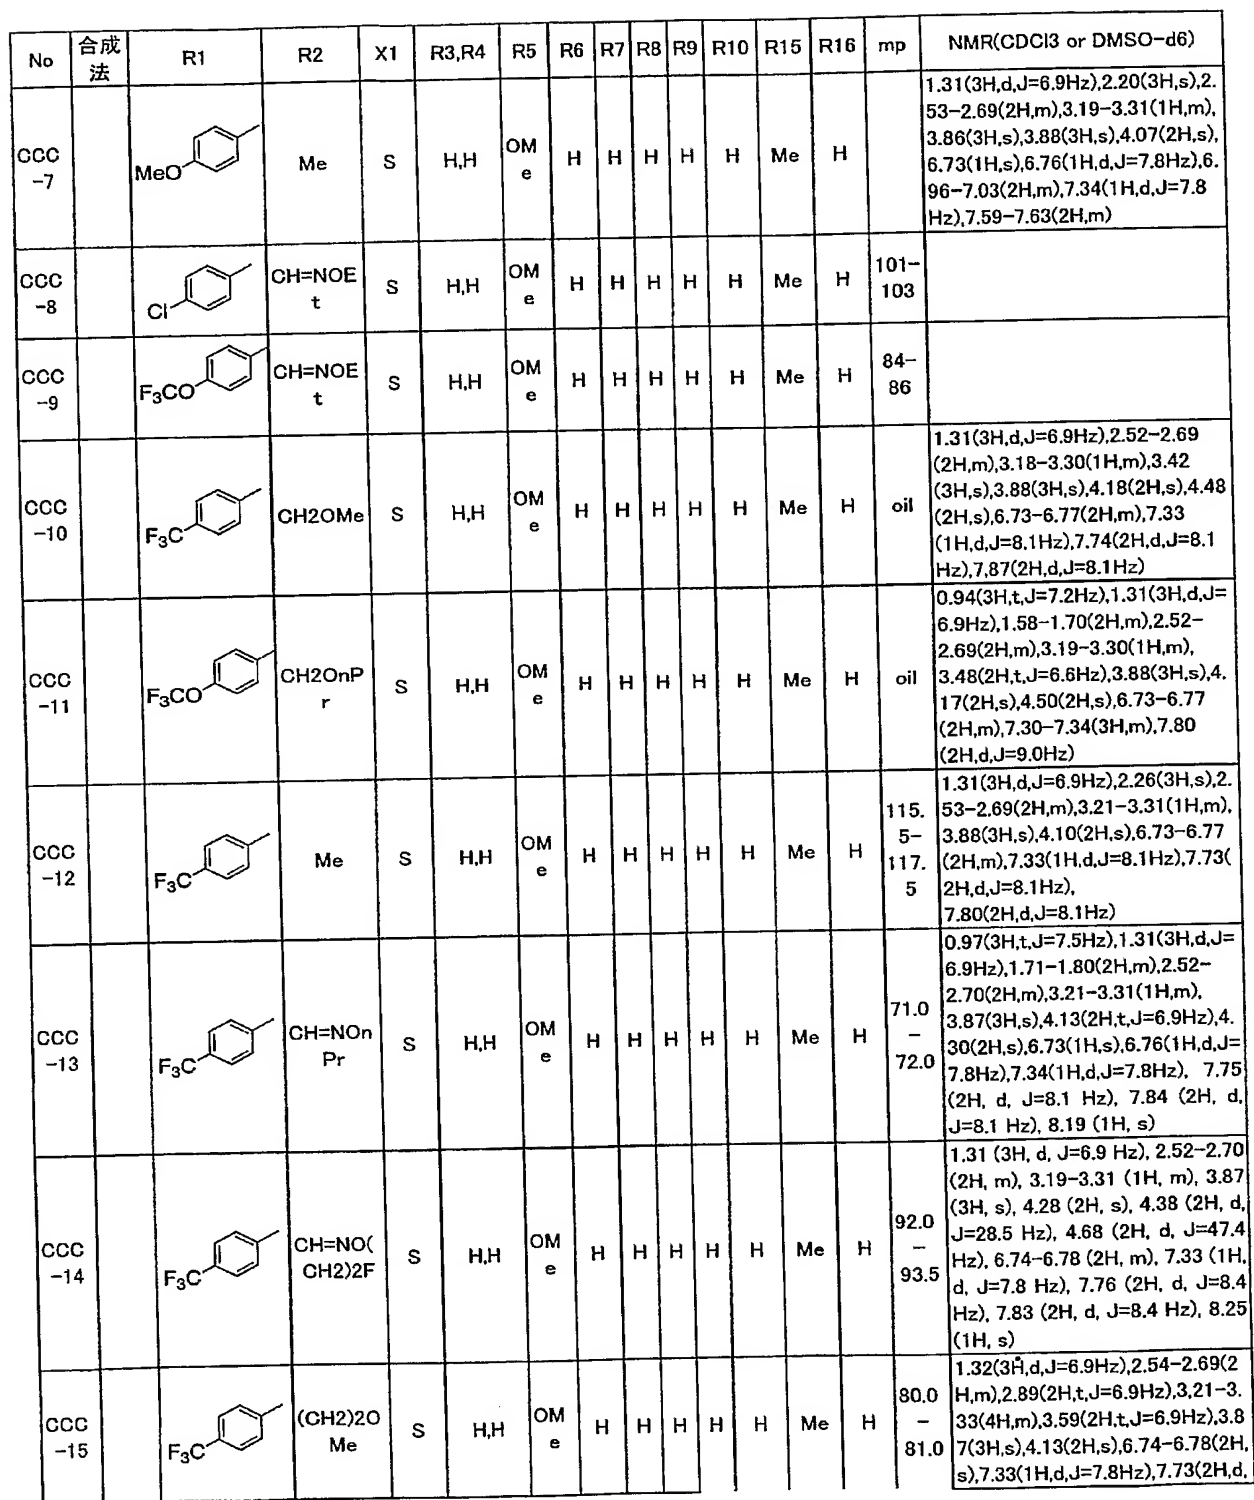 No 合成法 R1 R2 X1 R3,R4 R5 R6 R7 R8 R9 R10 R15 R16 mp NMR(CDCl3 or DMSO-d6)
CCC-7 MeO Me S H,H OMe H H H H H Me H
1.31(3H,d,J=6.9Hz),2.20(3H,s),2.
53-2.69(2H,m),3.19-3.31(1H,m),
3.86(3H,s),3.88(3H,s),4.07(2H,s),
6.73(1H,s),6.76(1H,d,J=7.8Hz),6.
96-7.03(2H,m),7.34(1H,d,J=7.8
Hz),7.59-7.63(2H,m)
CCC-8 Cl CH=NOEt S H,H OMe H H H H H Me H 101-103
CCC-9 F3CO CH=NOEt S H,H OMe H H H H H Me H 84-86
CCC-10 F3C CH2OMe S H,H OMe H H H H H Me H oil
1.31(3H,d,J=6.9Hz),2.52-2.69
(2H,m),3.18-3.30(1H,m),3.42
(3H,s),3.88(3H,s),4.18(2H,s),4.48
(2H,s),6.73-6.77(2H,m),7.33
(1H,d,J=8.1Hz),7.74(2H,d,J=8.1
Hz),7,87(2H,d,J=8.1Hz)
CCC-11 F3CO CH2OnPr S H,H OMe H H H H H Me H oil
0.94(3H,t,J=7.2Hz),1.31(3H,d,J=
6.9Hz),1.58-1.70(2H,m),2.52-
2.69(2H,m),3.19-3.30(1H,m),
3.48(2H,t,J=6.6Hz),3.88(3H,s),4.
17(2H,s),4.50(2H,s),6.73-6.77
(2H,m),7.30-7.34(3H,m),7.80
(2H,d,J=9.0Hz)
CCC-12 F3C Me S H,H OMe H H H H H Me H 115.5-117.5
1.31(3H,d,J=6.9Hz),2.26(3H,s),2.
53-2.69(2H,m),3.21-3.31(1H,m),
3.88(3H,s),4.10(2H,s),6.73-6.77
(2H,m),7.33(1H,d,J=8.1Hz),7.73(
2H,d,J=8.1Hz),
7.80(2H,d,J=8.1Hz)
CCC-13 F3C CH=NOnPr S H,H OMe H H H H H Me H 71.0-72.0
0.97(3H,t,J=7.5Hz),1.31(3H,d,J=
6.9Hz),1.71-1.80(2H,m),2.52-
2.70(2H,m),3.21-3.31(1H,m),
3.87(3H,s),4.13(2H,t,J=6.9Hz),4.
30(2H,s),6.73(1H,s),6.76(1H,d,J=
7.8Hz),7.34(1H,d,J=7.8Hz), 7.75
(2H, d, J=8.1 Hz), 7.84 (2H, d,
J=8.1 Hz), 8.19 (1H, s)
CCC-14 F3C CH=NO(CH2)2F S H,H OMe H H H H H Me H 92.0-93.5
1.31 (3H, d, J=6.9 Hz), 2.52-2.70
(2H, m), 3.19-3.31 (1H, m), 3.87
(3H, s), 4.28 (2H, s), 4.38 (2H, d,
J=28.5 Hz), 4.68 (2H, d, J=47.4
Hz), 6.74-6.78 (2H, m), 7.33 (1H,
d, J=7.8 Hz), 7.76 (2H, d, J=8.4
Hz), 7.83 (2H, d, J=8.4 Hz), 8.25
(1H, s)
CCC-15 F3C (CH2)2OMe S H,H OMe H H H H H Me H 80.0-81.0
1.32(3H,d,J=6.9Hz),2.54-2.69(2
H,m),2.89(2H,t,J=6.9Hz),3,21-3.
33(4H,m),3.59(2H,t,J=6.9Hz),3.8
7(3H,s),4.13(2H,s),6.74-6.78(2H,
s),7.33(1H,d,J=7.8Hz),7.73(2H,d,